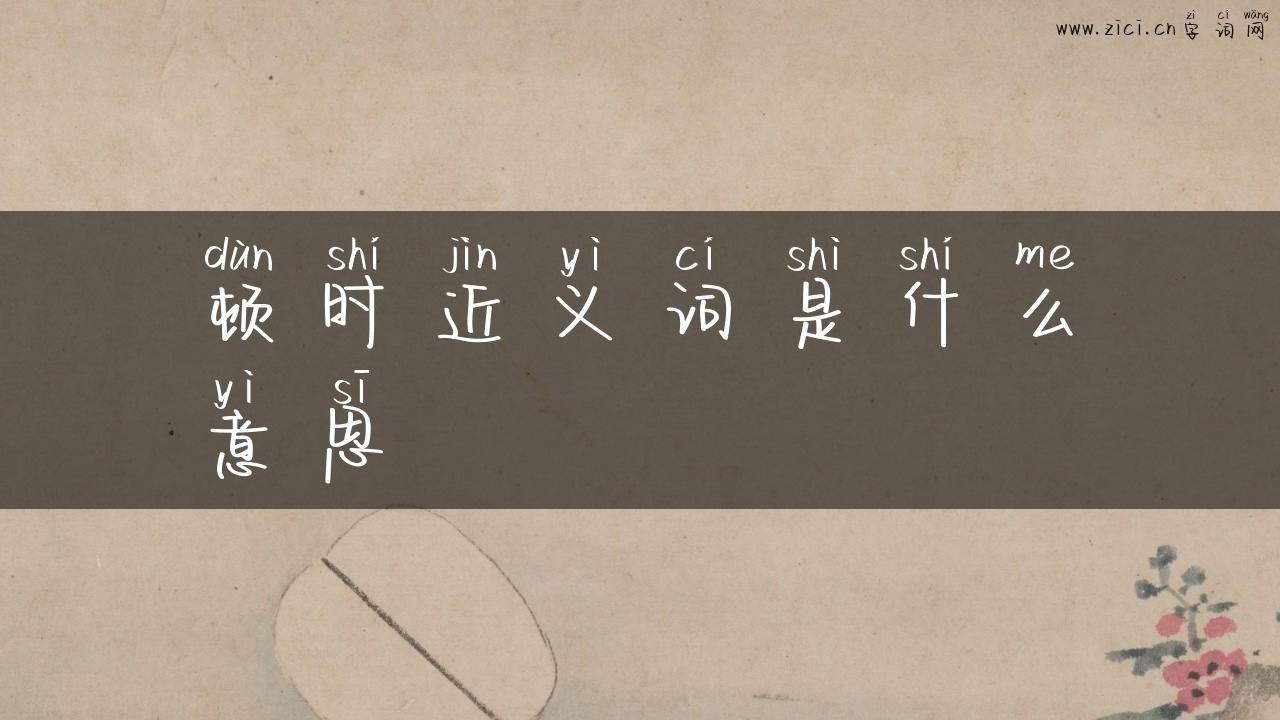 zì cí wǎng
www.zici.cn 字 词 网
dùn shí jìn yì cí shì shí me
顿 时 近 义 词 是 什 么
yì sī
意 思